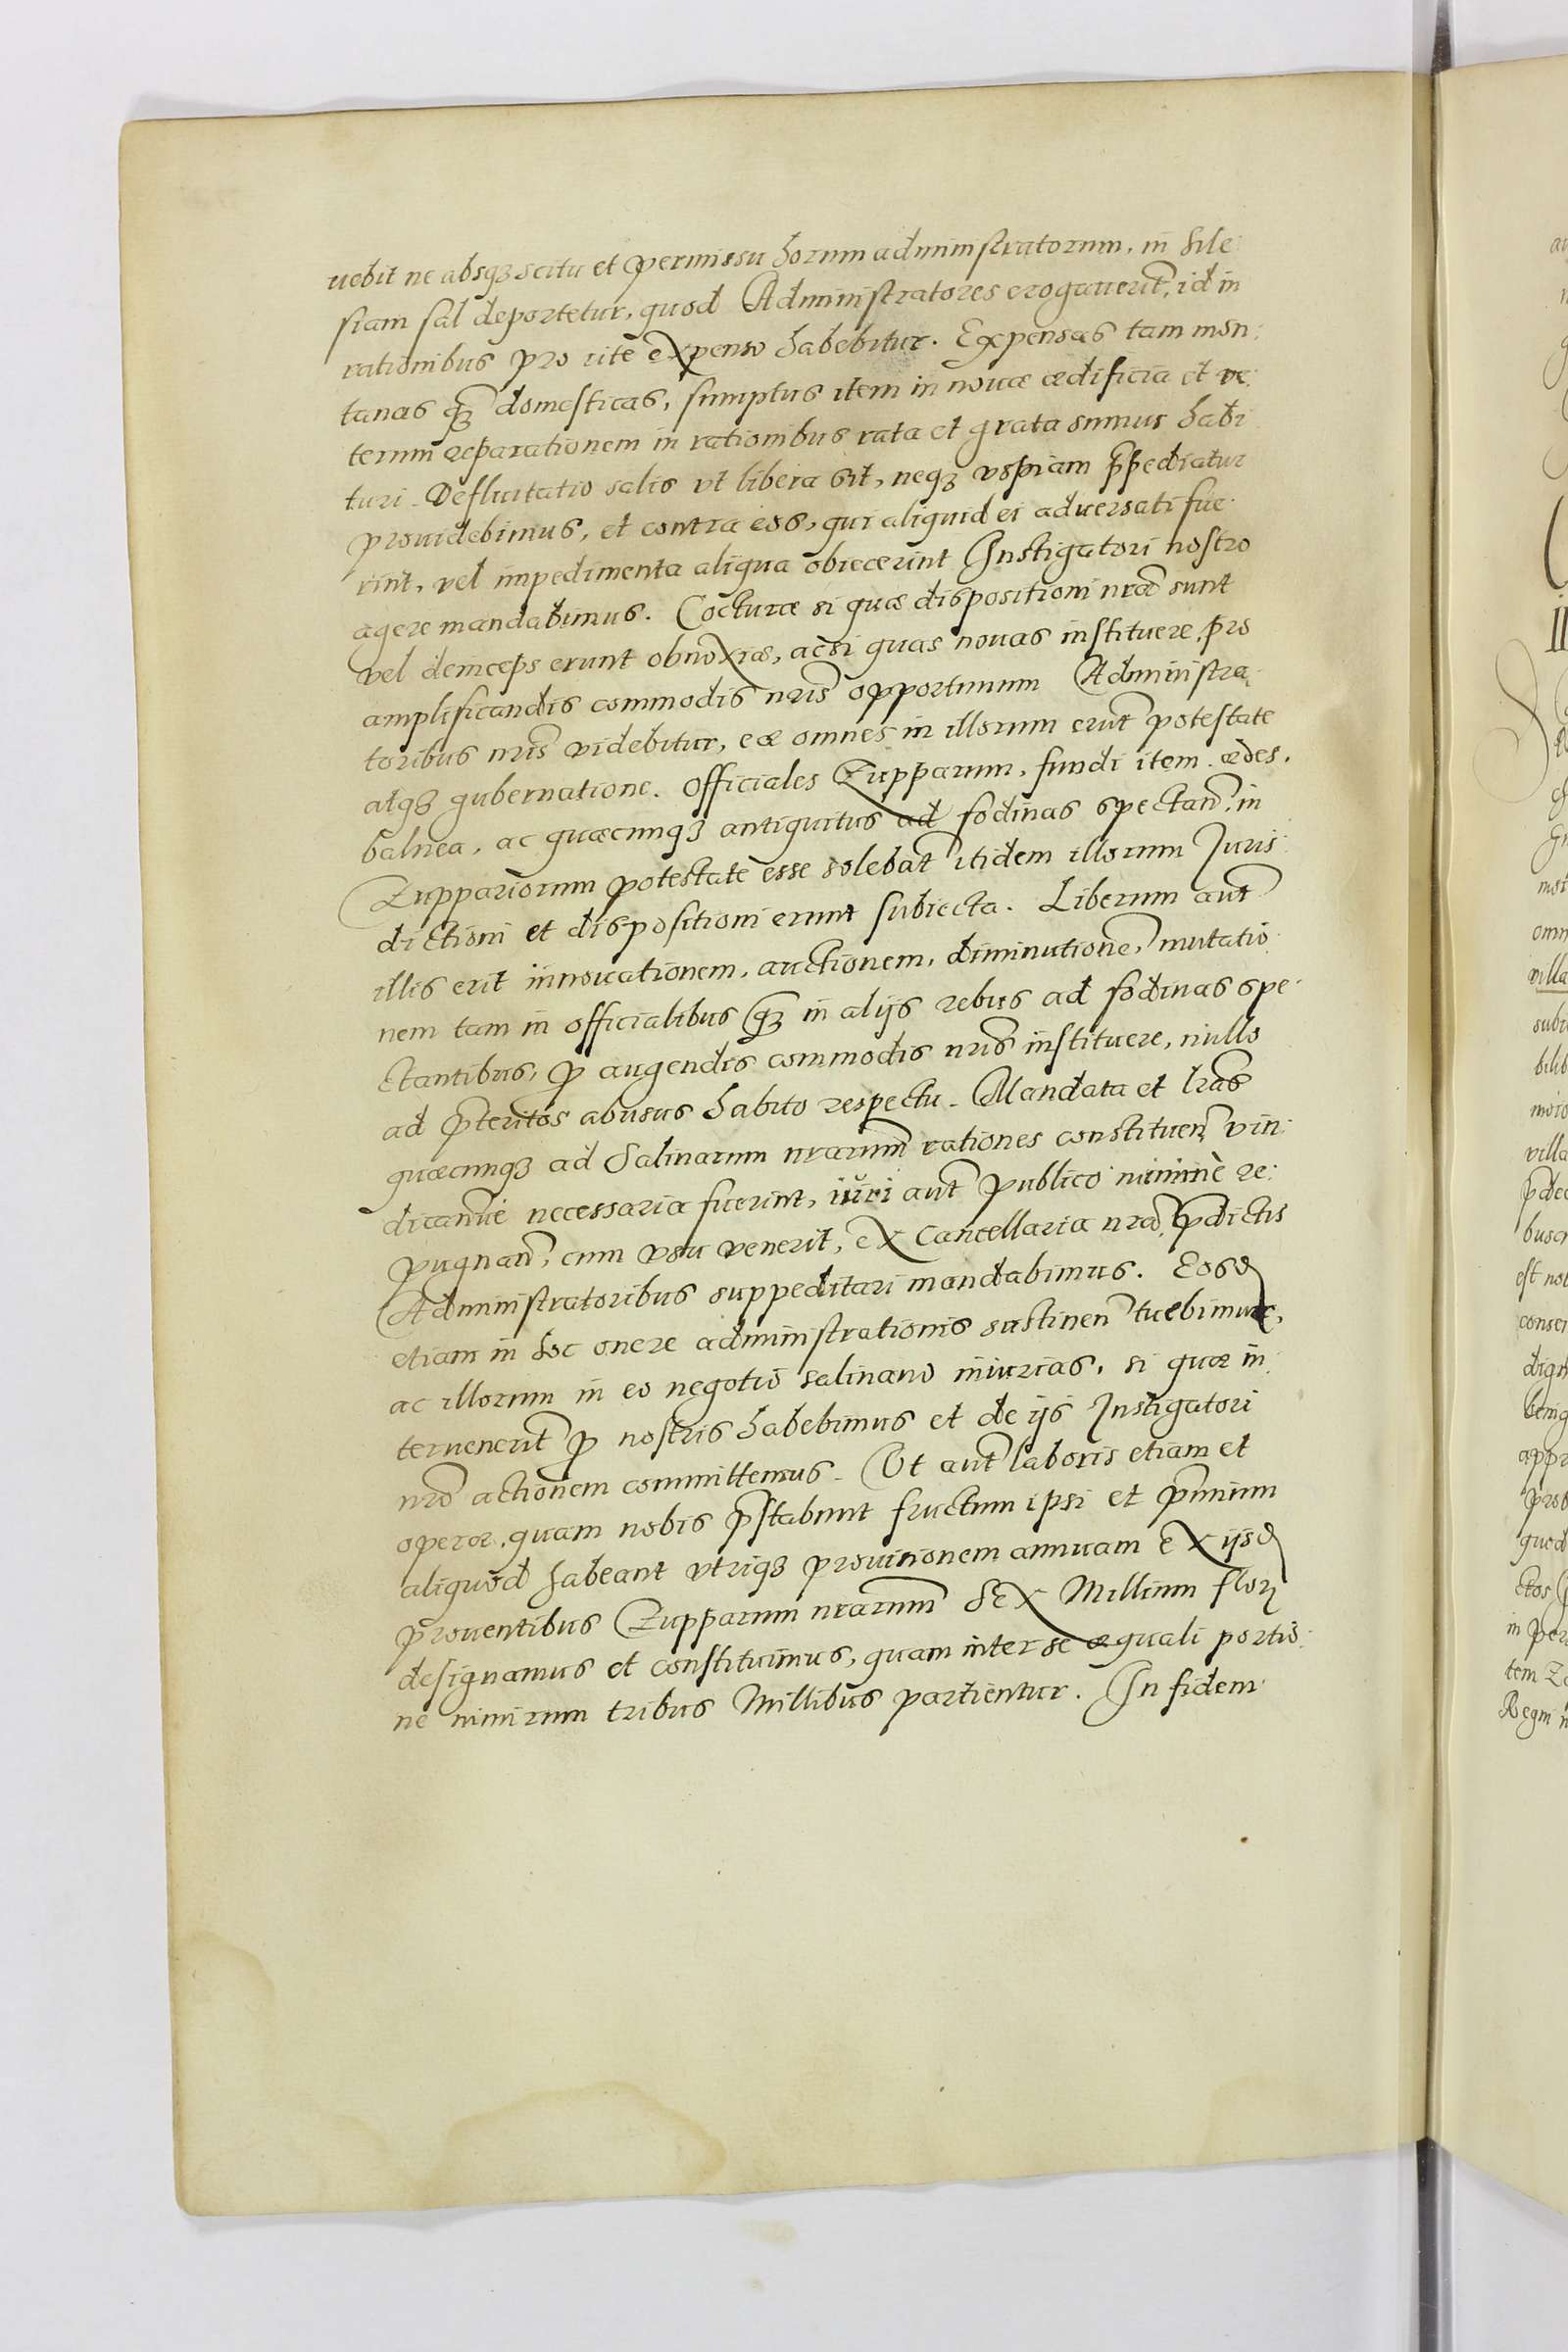 uebit ne absqꝫ scitu et permissu horum administratorum, in Sile
siam sal deportetur, quod Administratores erogauerīt, id in
rationibus pro ritè expenso habebitur. Expensas tam mon:
tanas qꝫ̃ domesticas, sumptus item in noua ædificia et ve:
terum reparationem in rationibus rata et grata sumus habi
turi. Defluitatio salis vt libera sit, neqꝫ vspiam p̄pediatur
prouidebimus, et contra eos, qui aliquid ei aduersati fue:
rint, vel impedimenta aliqua obiecerint Instigatori nostro
agere mandabimus. Cocturæ si quæ dispositioni nr̃æ sunt
vel deinceps erunt obnoxiæ, ac si quas nouas instituere, pro
amplificandis commodis nr̃is opportunum Administra,
toribus nr̃is videbitur, eæ omnes in illorum erūt potestate
atqꝫ gubernatione. Officiales Zupparum, fundi item. ædes,
balnea, ac quæcunqꝫ antiquitus ad fodinas spectan̄, in
Zuppariorum potestate esse solebāt itidem illorum Juris
dictioni et dispositioni erunt subiecta. Liberum aūt
illis erit innouationem, auctionem, diminutionē, mutatio
nem tam in officialibus qꝫ̃ in alijs rebus ad fodinas spe:
ctantibus, ꝓ augendis commodis nr̃is instituere, nullo
ad p̄teritos abusus habito respectu. Mandata et lr̃as
quæcunqꝫ ad Salinarum nr̃arum rationes constituen̄ vin:
dicanue necessaria fuerint, iuri aūt publico minimè re:
pugnan̄, cum vsu venerit, ex Cancellaria nr̃a, p̄dictis
Administratoribus suppeditari mandabimus. Eosd
etiam in hoc onere administrationis sustinen̄ tuebimur,
ac illorum in eo negotio salinario iniurias, si quæ in:
teruenerīt ꝓ nostris habebimus et de ijs Instigatori
nr̃o actionem committemus. Vt aūt laboris etiam et
operæ, quam nobis p̄stabunt fructum ipsi et p̄mium
aliquod habeant vtriqꝫ prouisionem annuam ex ijsd
prouentibus Zupparum nr̃arum sex Millium flor
designamus et constituimus, quam inter se æquali portio:
ne nimirum tribus Millibus partientur. In fidem